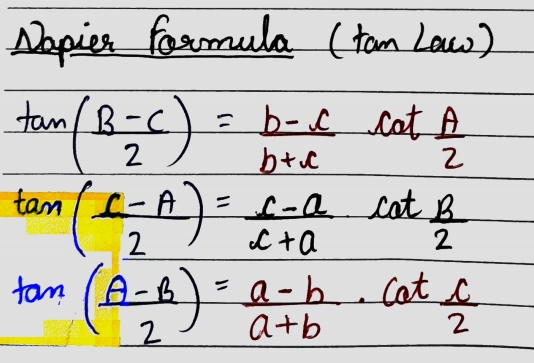 Napier Formula (tan Law)
tan ( B - C / 2 ) = b - c / b + c cot A / 2
tan ( C - A / 2 ) = c - a / c + a . cot B / 2
tan ( A - B / 2 ) = a - b / a + b . cot C / 2